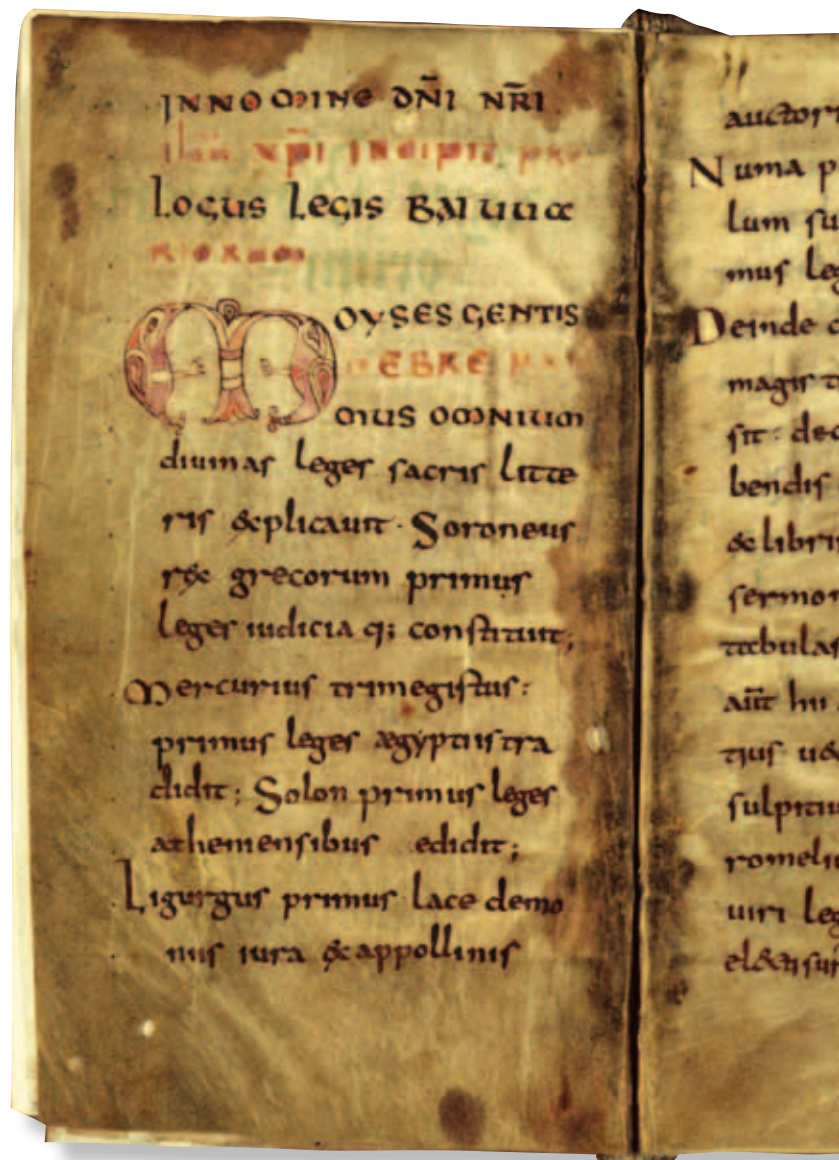 INNOMINE DN̄I NR̄I
Ihū XP̄I INCIPIT PRO
LOGUS LEGIS BAIUUA
RIORUM
MOYSES GENTIS
HEBRE PRI
MUS OMNIUM
diuinas leges sacris litte
ris &plicauit· Soroneus
rex grecorum primus
leges iudicia q; constituit;
Mercurius trimegistus:
primus leges aegyptiis tra
didit; Solon primus leges
atheniensibus edidit;
Ligurgus primus lacedemo
niis iura & appollinis
auctori
Numa p
lum su
mus leg
Deinde c
magis t
sit· dec
bendis
& libris
sermon
tabulas
aūt hii
tius u&
sulpitiu
romeliu
uiri leg
el&isun